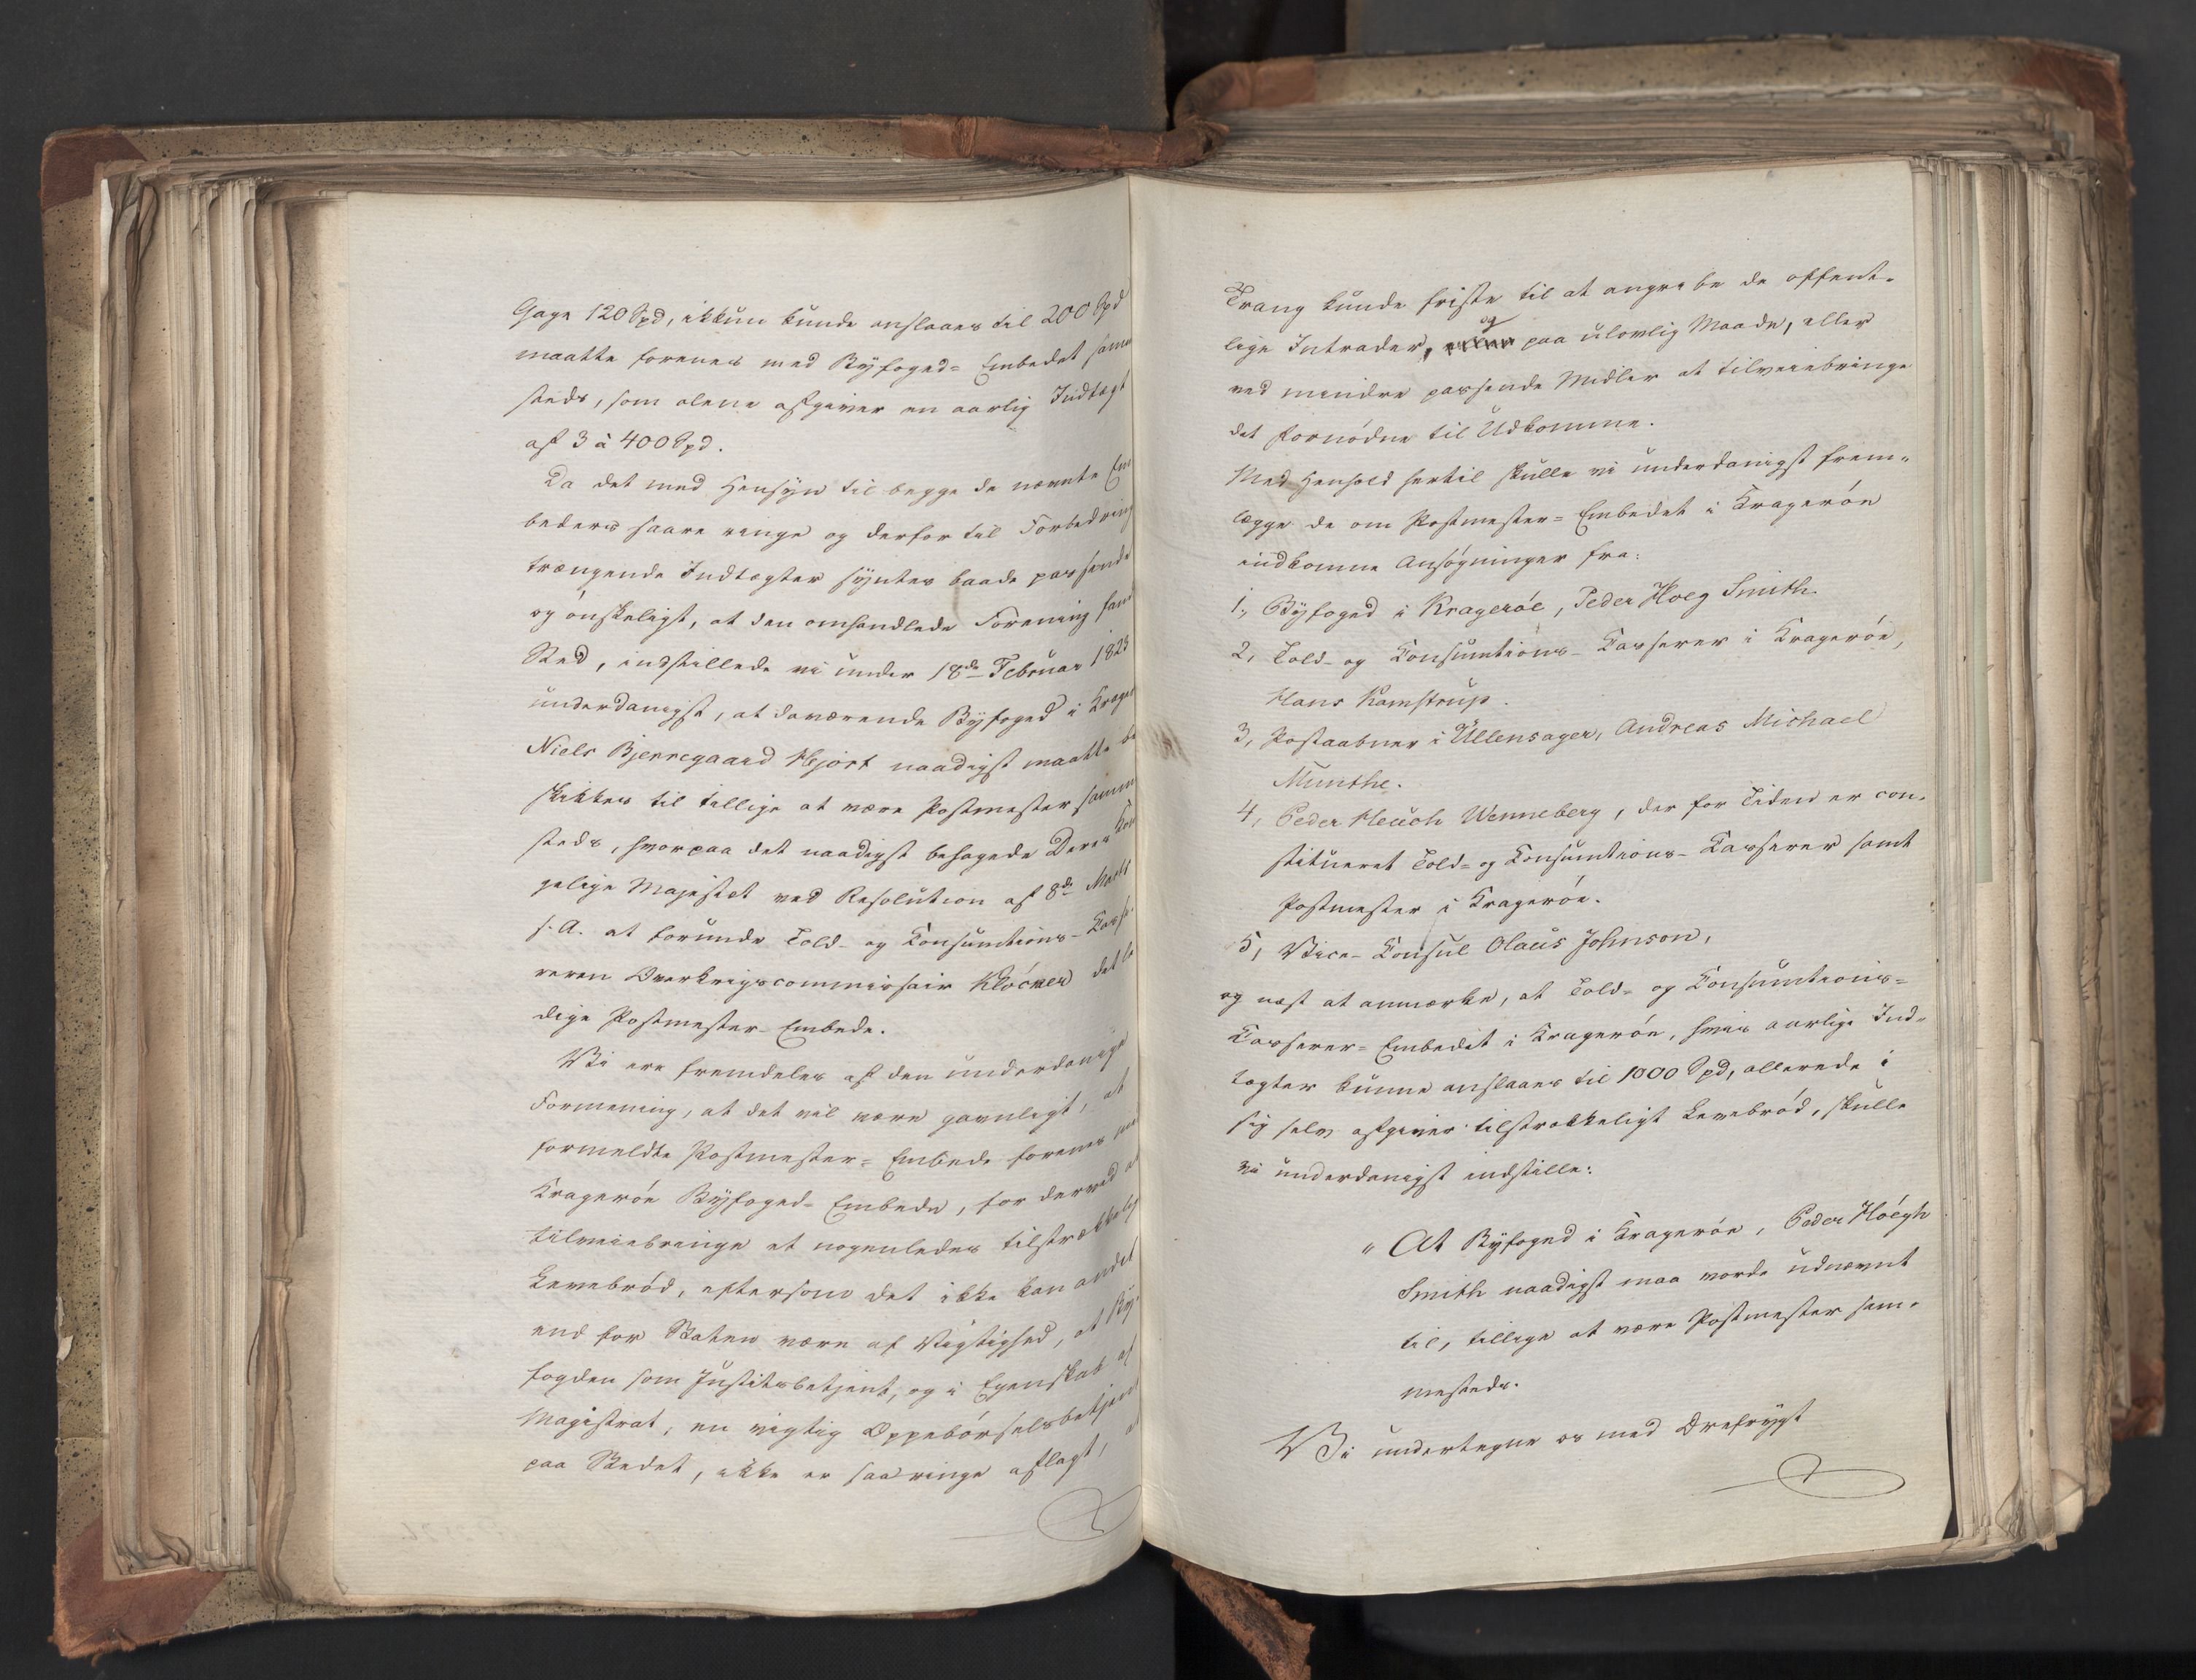 Gage 120 Spd, ikkun kunde anslaaes til 200 Spd
maatte forenes med Byfoged= Embedet samme
steds, som alene afgiver en aarlig Indtægt
af 3 à 400 Spd.
Da det med Hensyn til begge de nævnte Em
beders saare ringe og derfor til Forbedring
trængende Indtægter syntes baade passende
og ønskeligt, at den omhandlede Forening fandt
Sted, indstillede vi under 18de Februar 1823
underdanigst, at daværende Byfoged i Krager
Niels Bjerregaard Hjort naadigst maatte be
skikkes til tillige at være Postmester samme
steds, hvorpaa det naadigst behagede Deres Kon
gelige Majestæt ved Resolution af 8de Marts
s. A. at forunde Told- og Consumtions- Casse
reren Overkrigscommissair Kløcker det le
dige Postmester- Embede.
Vi ere fremdeles af den underdanige
Formening, at det vil være gavnligt, at
formeldte Postmester= Embede forenes med
Kragerøe Byfoged= Embede, for derved at
tilveiebringe et nogenledes tilstrækkeligt
Levebrød, eftersom det ikke kan andet
end for Staten være af Vigtighed, at By-
fogden som Justitsbetjent, og i Egenskab af
Magistrat, en vigtig Oppebørselsbetjent
paa Stedet, ikke er saa ringe aflagt, at
Trang kunde friste til at angribe de offent-
lige Intrader, og paa ulovlig Maade, eller
ved mindre passende Midler at tilveiebringe
det fornødne til Udkomme.
Med Henhold hertil skulle vi underdanigst frem-
lægge de om Postmester= Embedet i Kragerøe
indkomne Ansøgninger fra:
1, Byfoged i Kragerøe, Peder Høeg Smith.
2, Told- og Consumtions- Casserer i Kragerøe,
Hans Kamstrup.
3, Postaabner i Ullensager, Andreas Michael
Munthe.
4, Peder Heuch Wenneberg, der for Tiden er con-
stitueret Told= og Consumtions- Casserer samt
Postmester i Kragerøe.
5, Vice- Consul Olaus Johnson,
og næst at anmærke, at Told- og Consumtions=
Casserer= Embedet i Kragerøe, hvis aarlige Ind-
tægter kunne anslaaes til 1000 Spd, allerede i
sig selv afgiver tilstrækkeligt Levebrød, skulle
vi underdanigst indstille:
" At Byfoged i Kragerøe, Peder Høegh
Smith naadigst maa vorde udnævnt
til, tillige at være Postmester sam-
mesteds.
Vi undertegne os med Ærefrygt